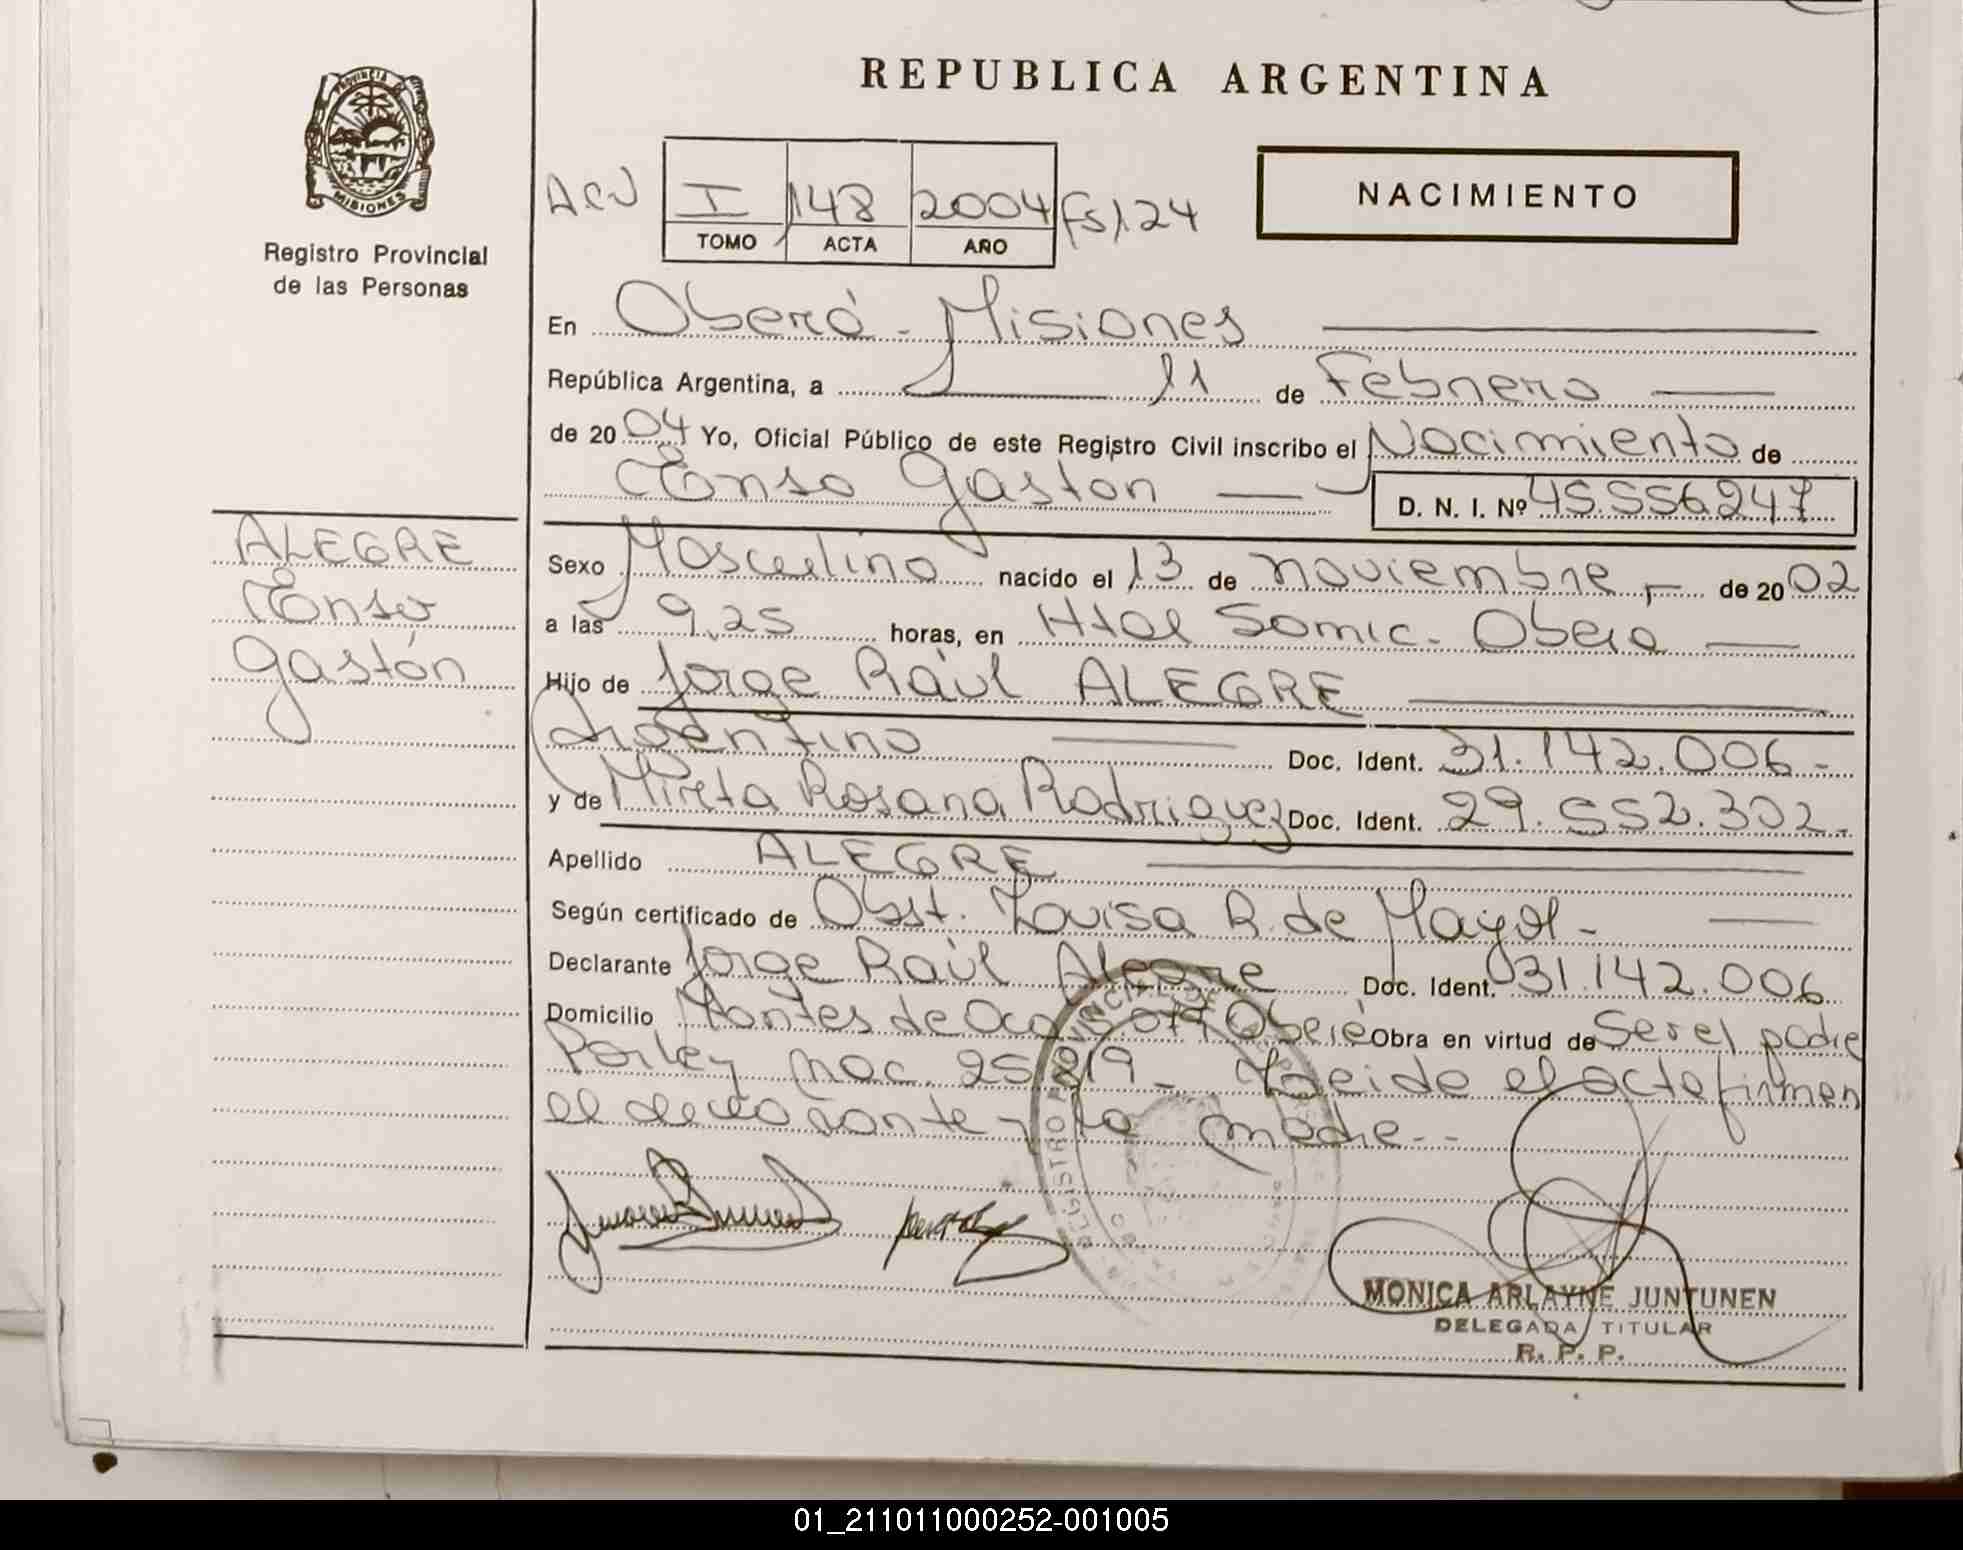 REPUBLICA ARGENTINA
PROVINCIA
MISIONES
Registro Provincial
de las Personas
NACIMIENTO
I 148 2004 fs 124
TOMO ACTA AÑO
En Oberá - Misiones
República Argentina, a 11 de Febrero
de 2004 Yo, Oficial Público de este Registro Civil inscribo el Nacimiento de
Enso Gaston D. N. I. Nº 45.556247
ALEGRE
Enso
Gastón
Sexo Masculino nacido el 13 de noviembre de 2002
a las 9,25 horas, en Htal Samic - Obera
Hijo de Jorge Raúl ALEGRE
Argentino Doc. Ident. 31.142.006 -
y de Mirta Rosana Rodriguez Doc. Ident. 29.552.302 -
Apellido ALEGRE
Según certificado de Obst. Louisa R. de Mayol -
Declarante Jorge Raúl Alegre Doc. Ident. 31.142.006
Domicilio Montes de Oca Oberá Obra en virtud de Ser el padre
Por ley nac. 25819 - Leida el acta firman
el declarante y la madre --
MONICA ARLAYNE JUNTUNEN
DELEGADA TITULAR
R. P. P.
01_211011000252-001005